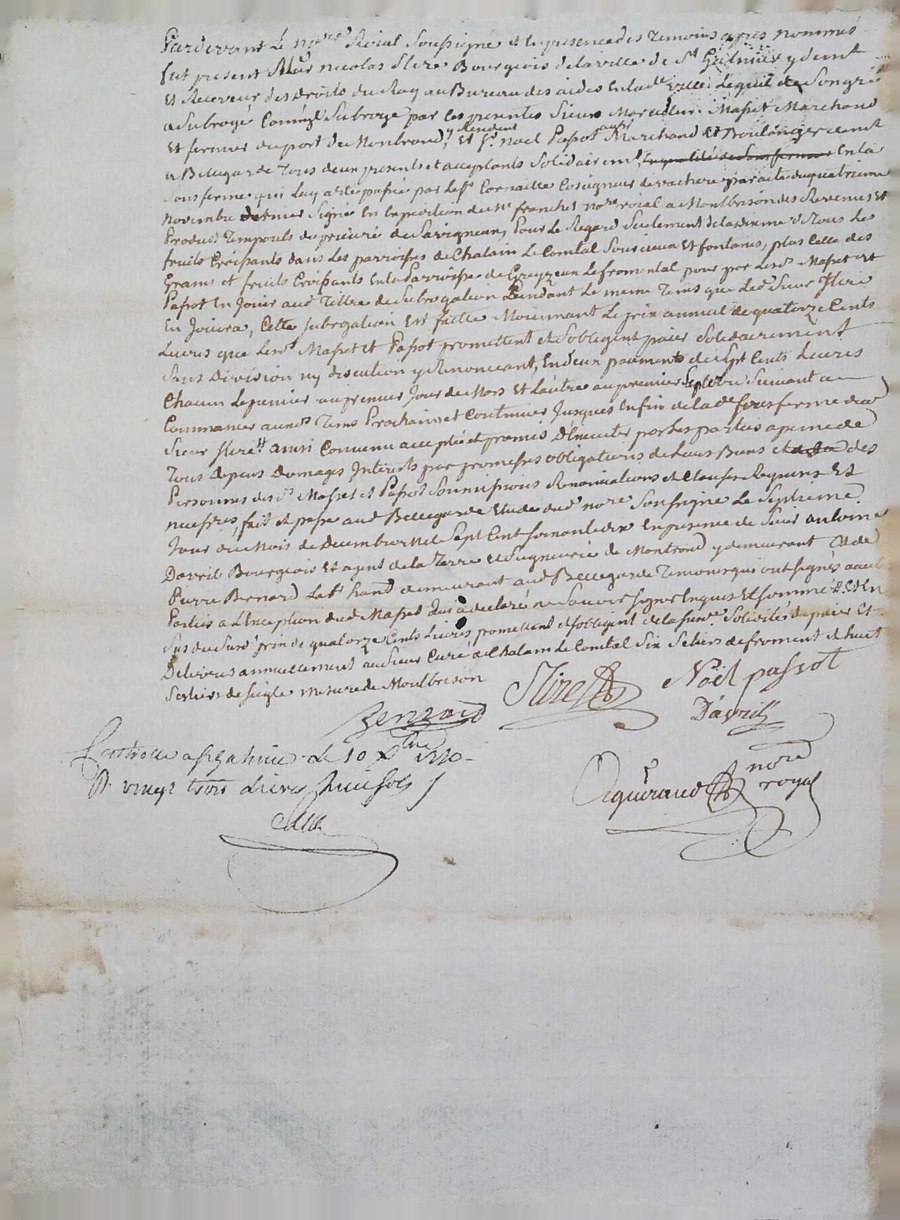 Pardevant Le no.re Roial Soussigné et En presence des Temoins apres nommés
fut present Sieur nicolas Bourgeois de la ville de St Galmier y dem.t
Et Receveur des droits du Roy au Bureau des aides En lad. ville Lequel de Son gré
a Subrogé Comme Subroge par Ces presentes Sieurs Marcelin Masset Marchand
Et fermier du port de Montrond, y demeurant Et Sr. noel Passot Marchand Et Boulanger dem.t
a Bellegarde Tous deux presents et acceptants Solidairem.t En la
Sousferme qui Luy a eté passée par Le Sr. par acte du quatrieme
novembre dernier Signé En Expedition du Me. franchet no.re roial a Montbrison des Revenus Et
Produits Temporels du prieuré de Savigneux, Pour Le Regard Seulement de la disme de Tous Les
fruits Croissants dans Les parroisses de Chalain Le Comtal Sourcieux Et fontanes, plus Celle des
Grains et fruits Croissants En la Parroisse de Le fromental pour par Lesd. Masset et
Passot En Jouir aud. Tiltre de Subrogation Pendant Le meme Tems que led. Sieur
En Jouira, Cette Subrogation Est faitte Moiennant Le prix annuel de quatorze Cents
Livres que Lesd. Masset et Passot promettent et S'obligent paier Solidairement
Sans Division ny discution y Renonceant, En deux paiements de Sept Cents Livres
Chacun Le premier au premier Jour de Mars Et L'autre au premier Septbre Suivant a
Commancer aud. Tems Prochain et Continuer Jusques En fin de la de. Sousferme dud.
Sieur ainsi Convenu accepté et promis D'Executer par Les parties a peine de
Tous depens Domages Interets par promesses obligations de Leurs Biens et des
Personnes des d. Masset et Passot Soumissions Renonciations et Clauses Requises Et
necess.res, fait et passé aud. Bellegarde Etude dud. nore Soussigné Le Septieme
Jour du Mois de Decembre Mil Sept Cent Soixante dix En presence de Sieur antoine
Davril Bourgeois Et agent de la Terre et Seigneurie de Montrond y demeurant Et de
Pierre Benard demeurant aud. Bellegarde Temoins qui ont Signés avec les
Parties a L'Exception dud. Masset qui a declaré ne Scavoir Signer Enquis Et Sommé Et En
Sus du Susd. prix de quatorze Cents Livres promettent et S'obligent Solidité de paier Et
Delivrer annuellement au Sieur Curé de Chalain Le Comtal Six Setiers de froment Et huit
Setiers de Seigle mesure de Montbrison
Noël passot
Benard Davril
Controllé a St Galmier Le 10 Xbre 1770
R. vingt trois Livres huit sols
nore
royal